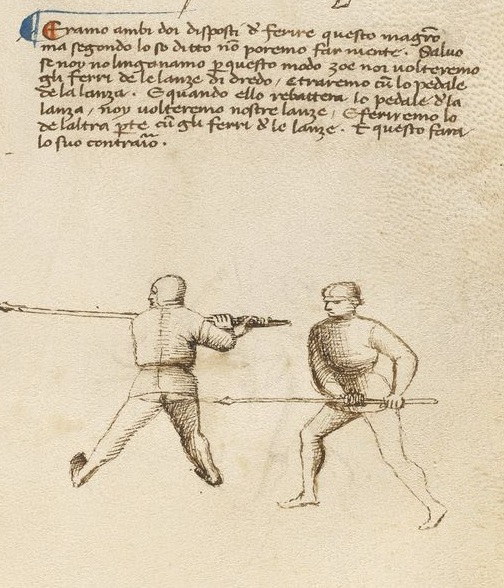 Eramo ambi doi disposti d' ferire questo magro.
ma segondo lo so ditto nō poremo far niente. Salvo
se noy no linganamo p questo modo zoe noi volteremo
gli ferri de le lanze di dredo / e traremo cū lo pedale
de la lanza. E quando ello rebattera lo pedale d'la
lanza / noy volteremo nostre lanze / E feriremo lo
de laltra pte cū gli ferri d'le lanze. E questo sara
lo suo contrario.